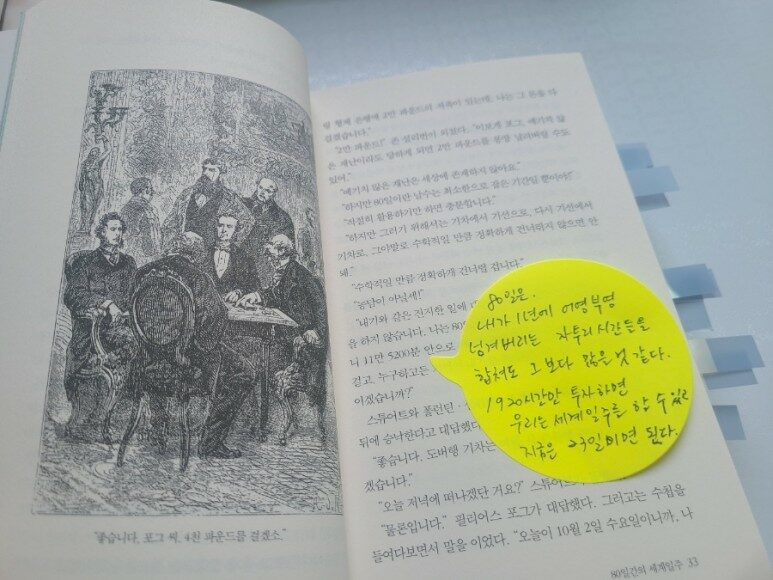 "좋습니다. 포그 씨. 4천 파운드를 걸겠소."
링 형제 은행에 2만 파운드의 저축이 있는데, 나는 그 돈을 다
걸겠습니다."
"2만 파운드!" 존 설리번이 외쳤다. "이보게 포그, 예기치 않
은 재난이라도 당하게 되면 2만 파운드를 몽땅 날려버릴 수도
있어."
"예기치 않은 재난은 세상에 존재하지 않아요."
"하지만 80일이란 날수는 최소한으로 잡은 기간일 뿐이야!"
"적절히 활용하기만 하면 충분합니다."
"하지만 그러기 위해서는 기차에서 기선으로, 다시 기선에서
기차로, 그야말로 수학적일 만큼 정확하게 건너뛰지 않으면 안
돼."
"수학적일 만큼 정확하게 건너뛸 겁니다."
"농담이 아닐세!"
"내기와 같은 진지한 일에
을 하지 않습니다. 나는 80
니 11만 5200분 안으로
걸고, 누구하고든
이겠습니까?"
스튜어트와 폴런틴
뒤에 승낙한다고 대답했다
"좋습니다. 도버행 기차는
겠습니다."
"오늘 저녁에 떠나겠단 거요?" 스튜어트
"물론입니다." 필리어스 포그가 대답했다. 그러고는 수첩을
들여다보면서 말을 이었다. "오늘이 10월 2일 수요일이니까, 나
80일간의 세계일주 33
80일은.
내가 1년에 어영부영
넘겨버리는 자투리시간들을
합쳐도 그보다 많을 것 같다.
1920시간만 투자하면
우리는 세계일주를 할 수 있고
지금은 23일이면 된다.